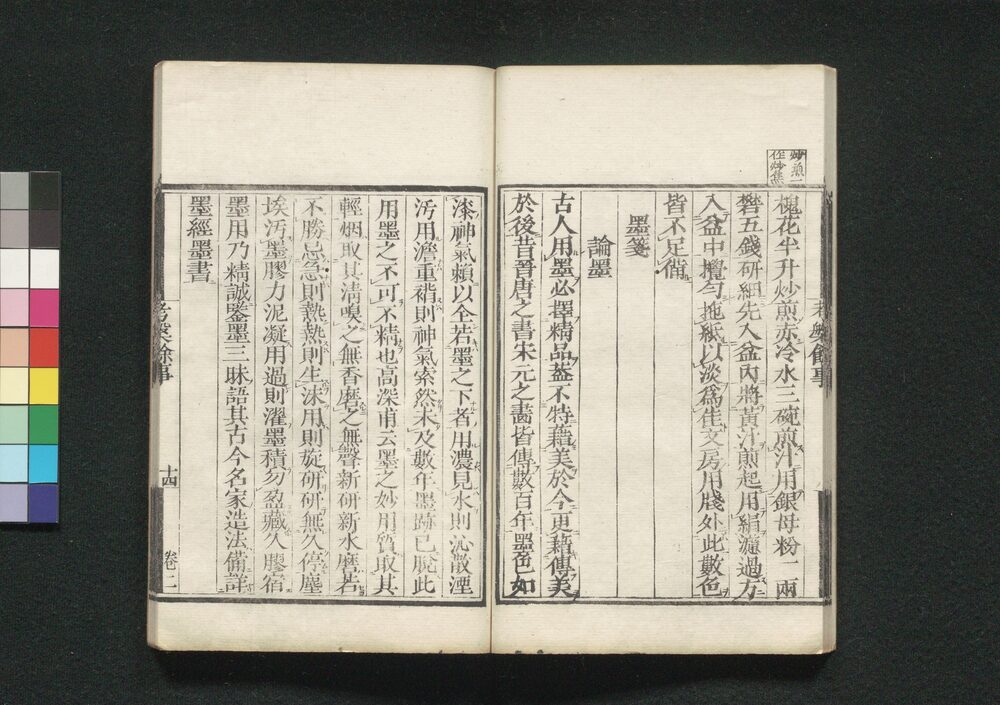 炒煎一
作炒焦
槐花半升炒煎赤冷水三碗煎汁用銀母粉一兩
礬五錢研細先入盆內將黃汁煎起用絹濾過方
入盆中攪勻拖紙以淡爲佳文房用牋外此數色
皆不足備
墨箋
論墨
古人用墨必擇精品蓋不特藉美於今更藉傳美
於後昔晉唐之書宋元之畵皆傳數百年墨色如
漆神氣賴以全若墨之下者用濃見水則沁散湮
汚用澹重褙則神氣索然未及數年墨跡已脫此
用墨之不可不精也高深甫云墨之妙用質取其
輕烟取其淸嗅之無香磨之無聲新研新水磨若
不勝忌急則熱熱則生沫用則旋研研無久停塵
埃汚墨膠力泥凝用過則濯墨積勿盈藏久膠宿
墨用乃精誠鑒墨三昧語其古今名家造法備詳
墨經墨書
考槃餘事
十四
卷二